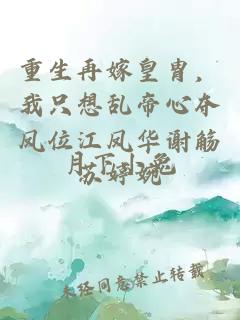 重生再嫁皇胄，
我只想乱帝心夺
凤位江风华谢觞
苏婷婉
月下小兔
未经同意禁止转载